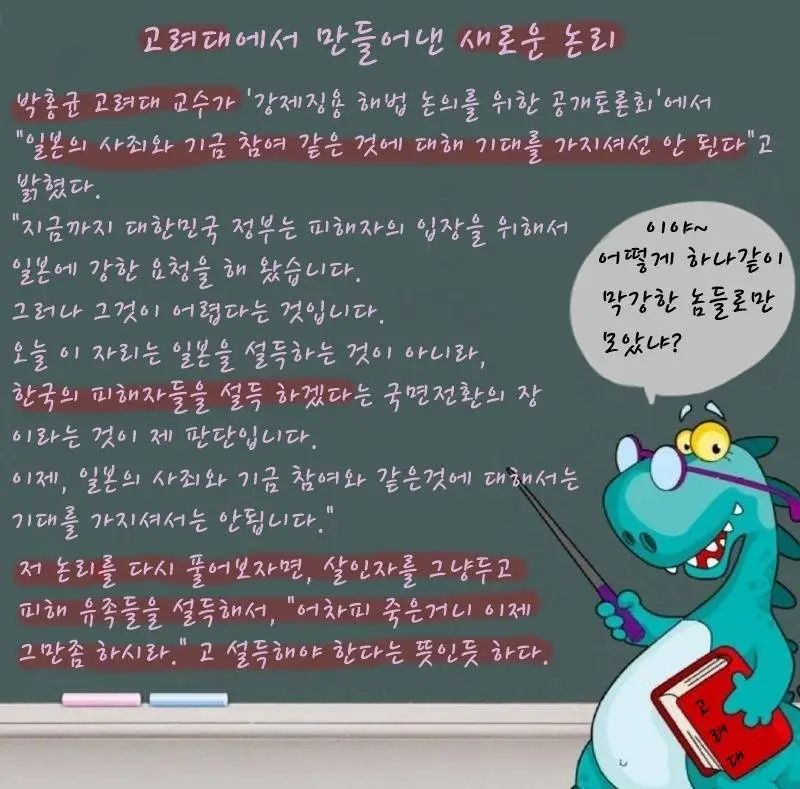 고려대에서 만들어낸 새로운 논리
박홍균 고려대 교수가 '강제징용 해법 논의를 위한 공개토론회'에서
"일본의 사죄와 기금 참여 같은 것에 대해 기대를 가지셔선 안 된다"고
밝혔다.
"지금까지 대한민국 정부는 피해자의 입장을 위해서
일본에 강한 요청을 해 왔습니다.
그러나 그것이 어렵다는 것입니다.
오늘 이 자리는 일본을 설득하는 것이 아니라,
한국의 피해자들을 설득 하겠다는 국면전환의 장
이라는 것이 제 판단입니다.
이제, 일본의 사죄와 기금 참여와 같은것에 대해서는
기대를 가지셔서는 안됩니다."
저 논리를 다시 풀어보자면, 살인자를 그냥두고
피해 유족들을 설득해서, "어차피 죽은거니 이제
그만좀 하시라." 고 설득해야 한다는 뜻인듯 하다.
이야~
어떻게 하나같이
막강한 놈들로만
모았냐?
고려대